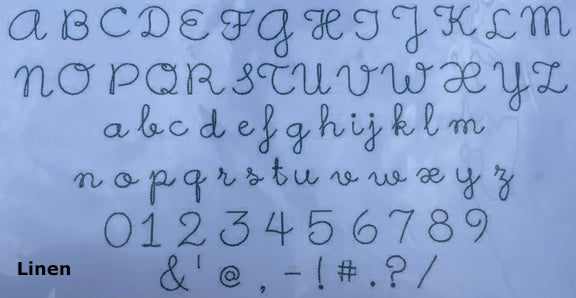 A B C D E F G H I J K L M
N O P Q R S T U V W X Y Z
a b c d e f g h i j k l m
n o p q r s t u v w x y z
0 1 2 3 4 5 6 7 8 9
& ' @ , - ! # . ? /
Linen